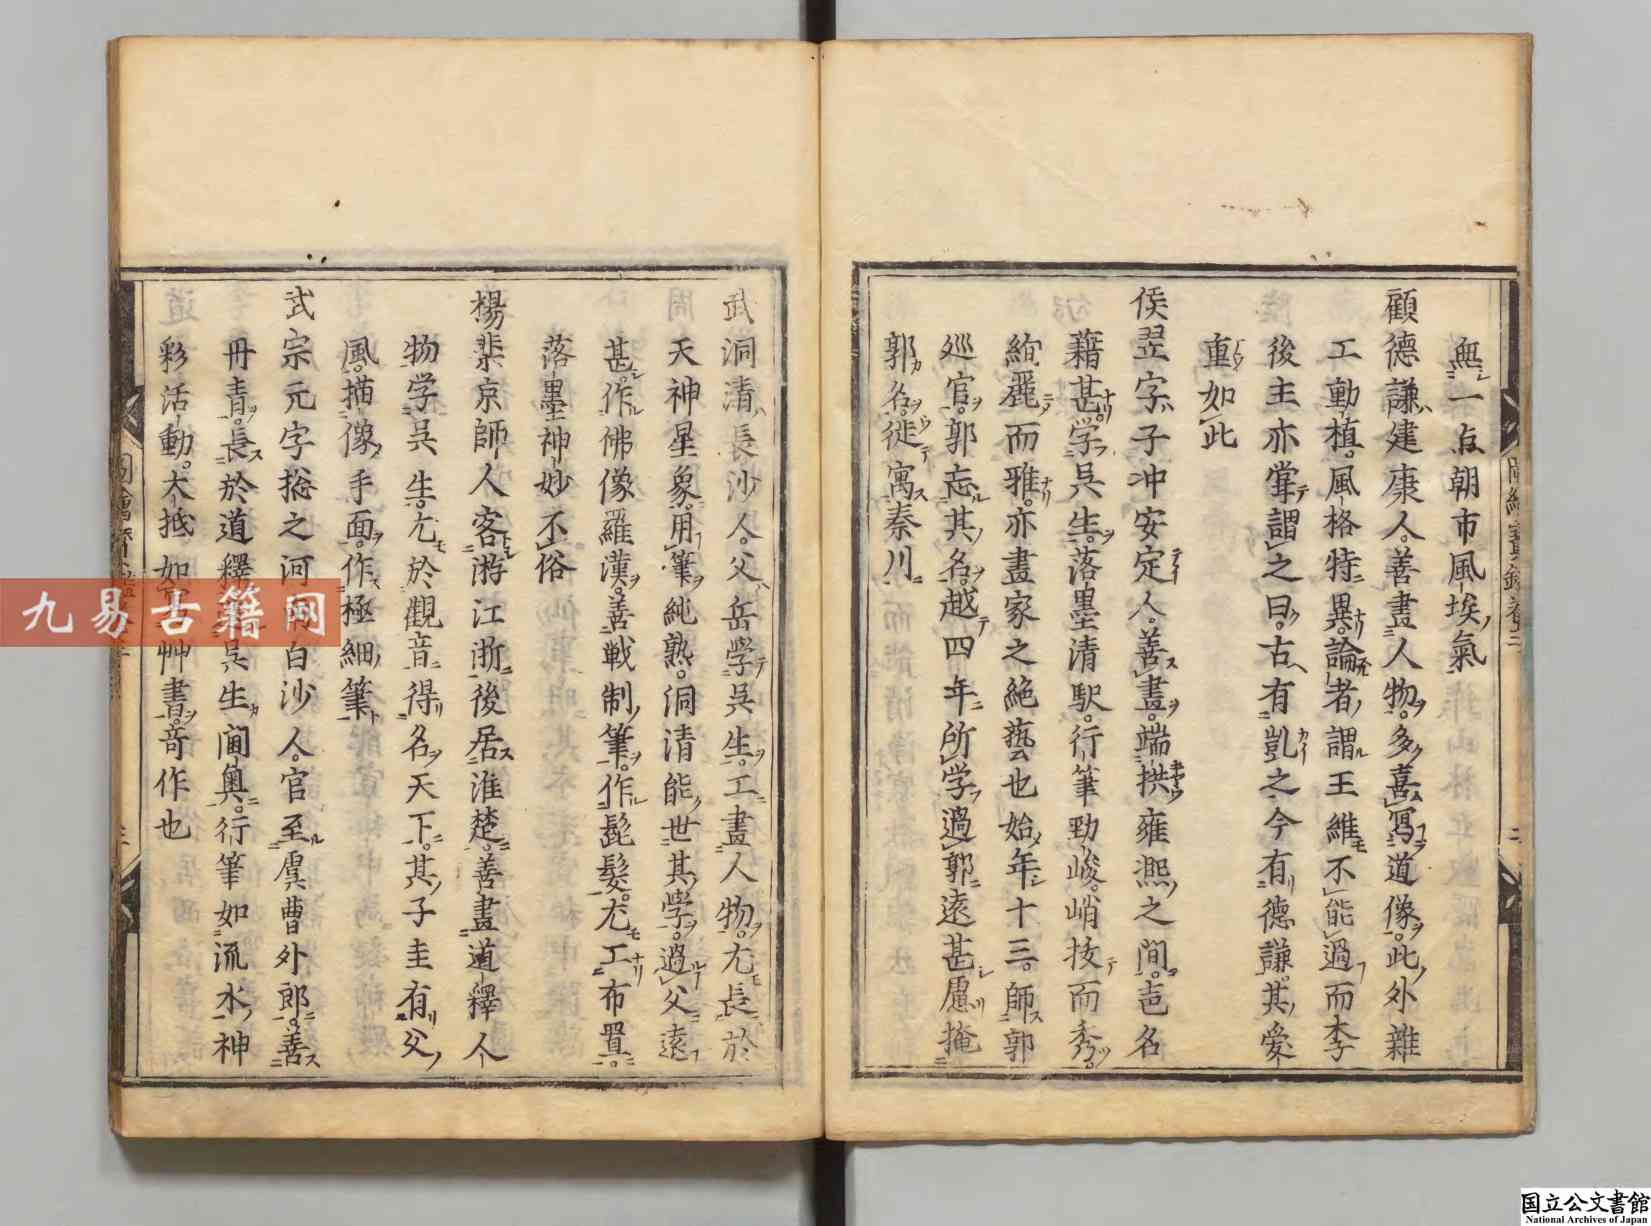 無一点朝市風埃氣
顧德謙建康人善畫人物多喜寫道像此外雜
工動植風格特異論者謂王維不能過而李
後主亦嘗謂之曰古有凱之今有德謙其愛
重如此
侯翌字子冲安定人善畫端拱雍熙之間聲名
藉甚学吳生落墨清駃行筆勁峻峭拔而秀
絢麗而雅亦畫家之絶藝也始年十三師郭
巡官郭忘其名越四年所学過郭遠甚慮掩
郭名徙寓秦川
圖繪寳鑑卷三
武洞清長沙人父岳学吳生工畫人物尤長於
天神星象用筆純熟洞清能世其學過父遠
甚作佛像羅漢善戦制筆作髭髮尤工布置
落墨神妙不俗
楊棐京師人客游江浙後居淮楚善畫道釋人
物学吳生尤於觀音得名天下其子圭有父
風描像手面作極細筆
武宗元字捴之河南白沙人官至虞曹外郎善
丹青長於道釋吳生閫奥行筆如流水神
彩活動大抵如冩艸書奇作也
九易古籍网
国立公文書館
National Archives of Japan